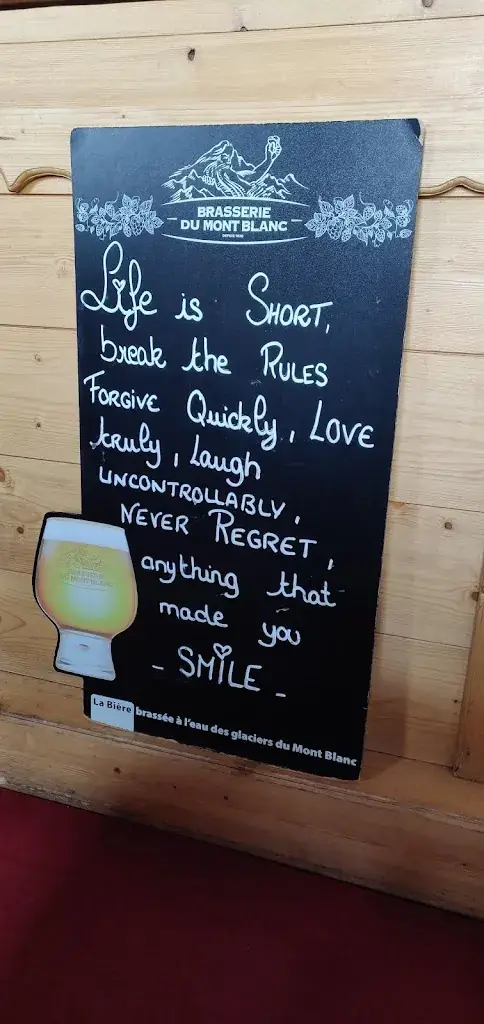 BRASSERIE
DU MONT BLANC
Life is SHORT,
break the RULES
FORGIVE Quickly, LOVE
truly, Laugh
UNCONTROLLABLY,
NEVER REGRET,
anything that
made you
- SMILE -
BRASSERIE
DU MONT BLANC
La Bière brassée à l'eau des glaciers du Mont Blanc